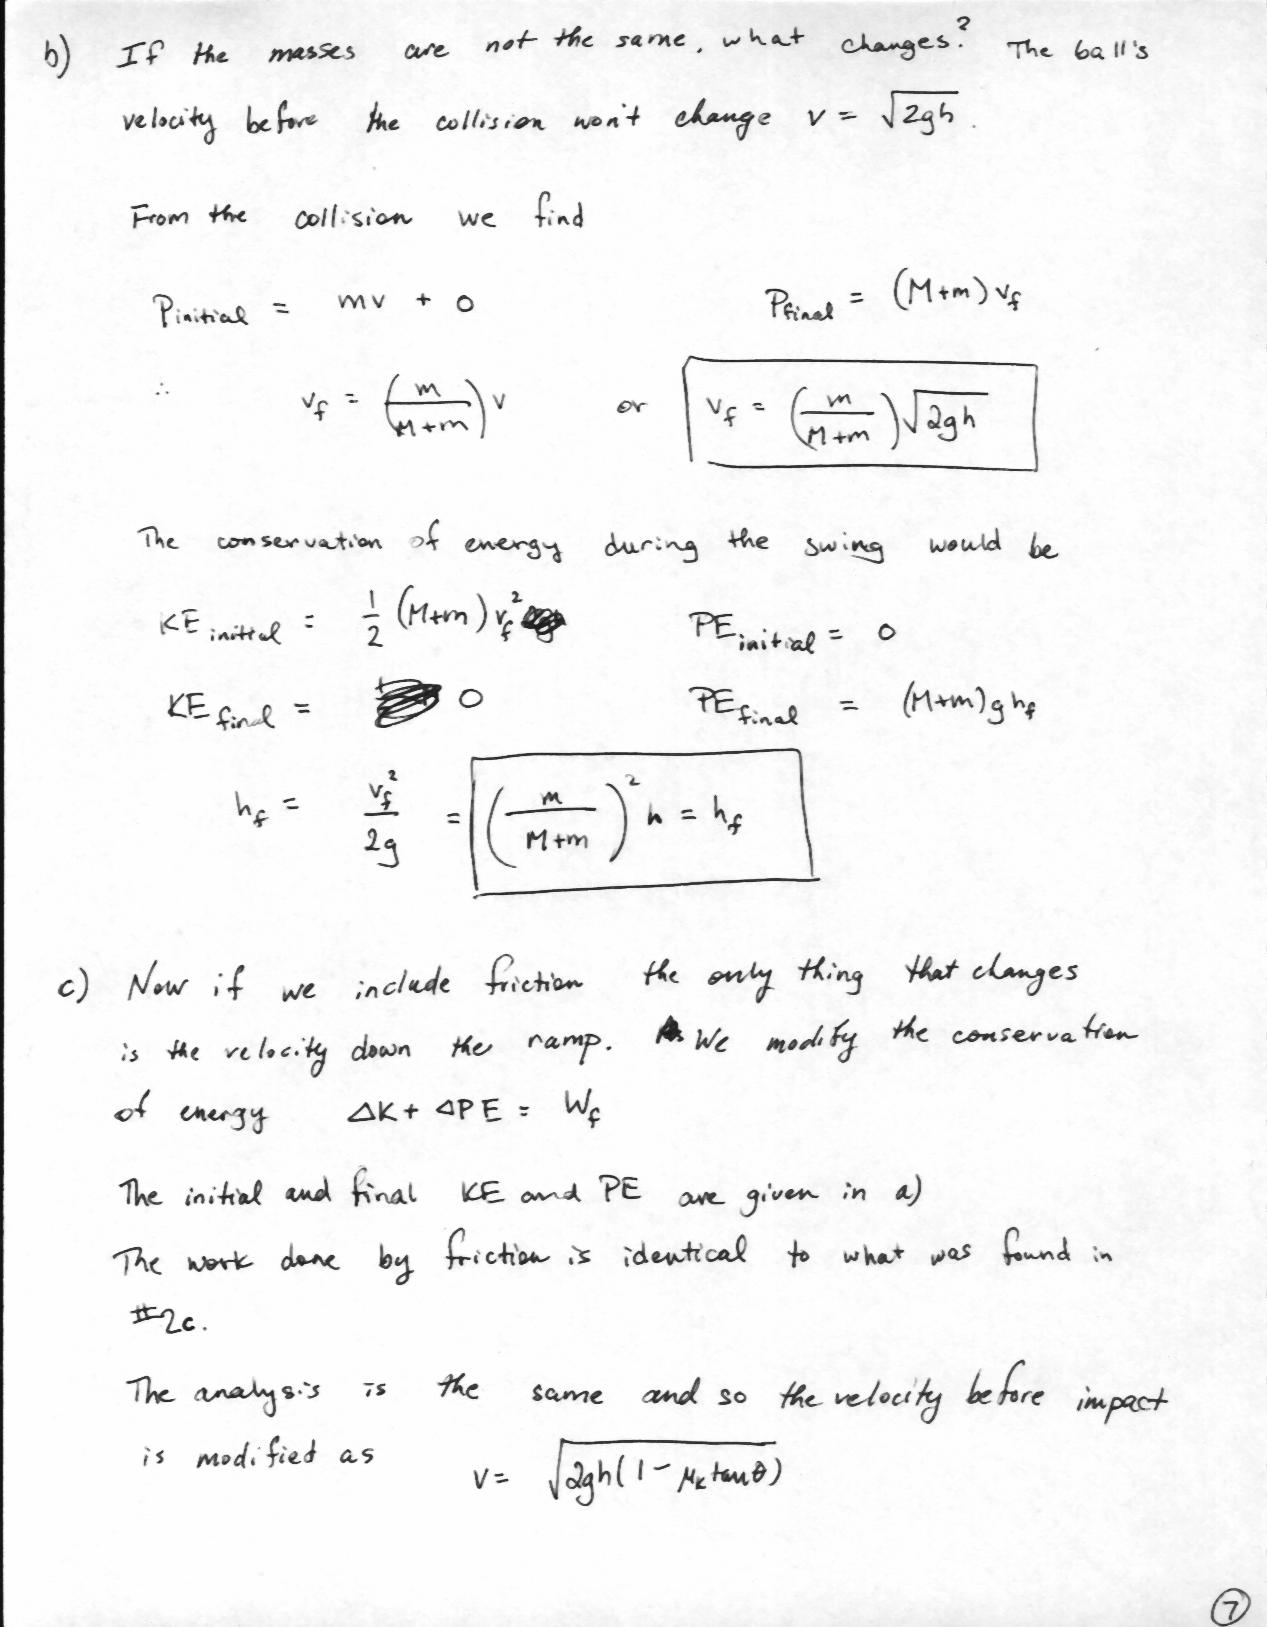 b) If the masses are not the same, what changes? The ball's
velocity before the collision won't change v = √2gh.
From the collision we find
Pinitial = mv + 0 Pfinal = (M+m) vf
∴ vf = (m/(M+m)) v or vf = (m/(M+m)) √2gh
The conservation of energy during the swing would be
KE initial = 1/2 (M+m) vf² PE initial = 0
KE final = 0 PE final = (M+m) g hf
hf = vf²/2g = (m/(M+m))² h = hf
c) Now if we include friction the only thing that changes
is the velocity down the ramp. We modify the conservation
of energy ΔK + ΔPE = Wf
The initial and final KE and PE are given in a)
The work done by friction is identical to what was found in
#2c.
The analysis is the same and so the velocity before impact
is modified as v = √2gh(1 - μk tanθ)
7